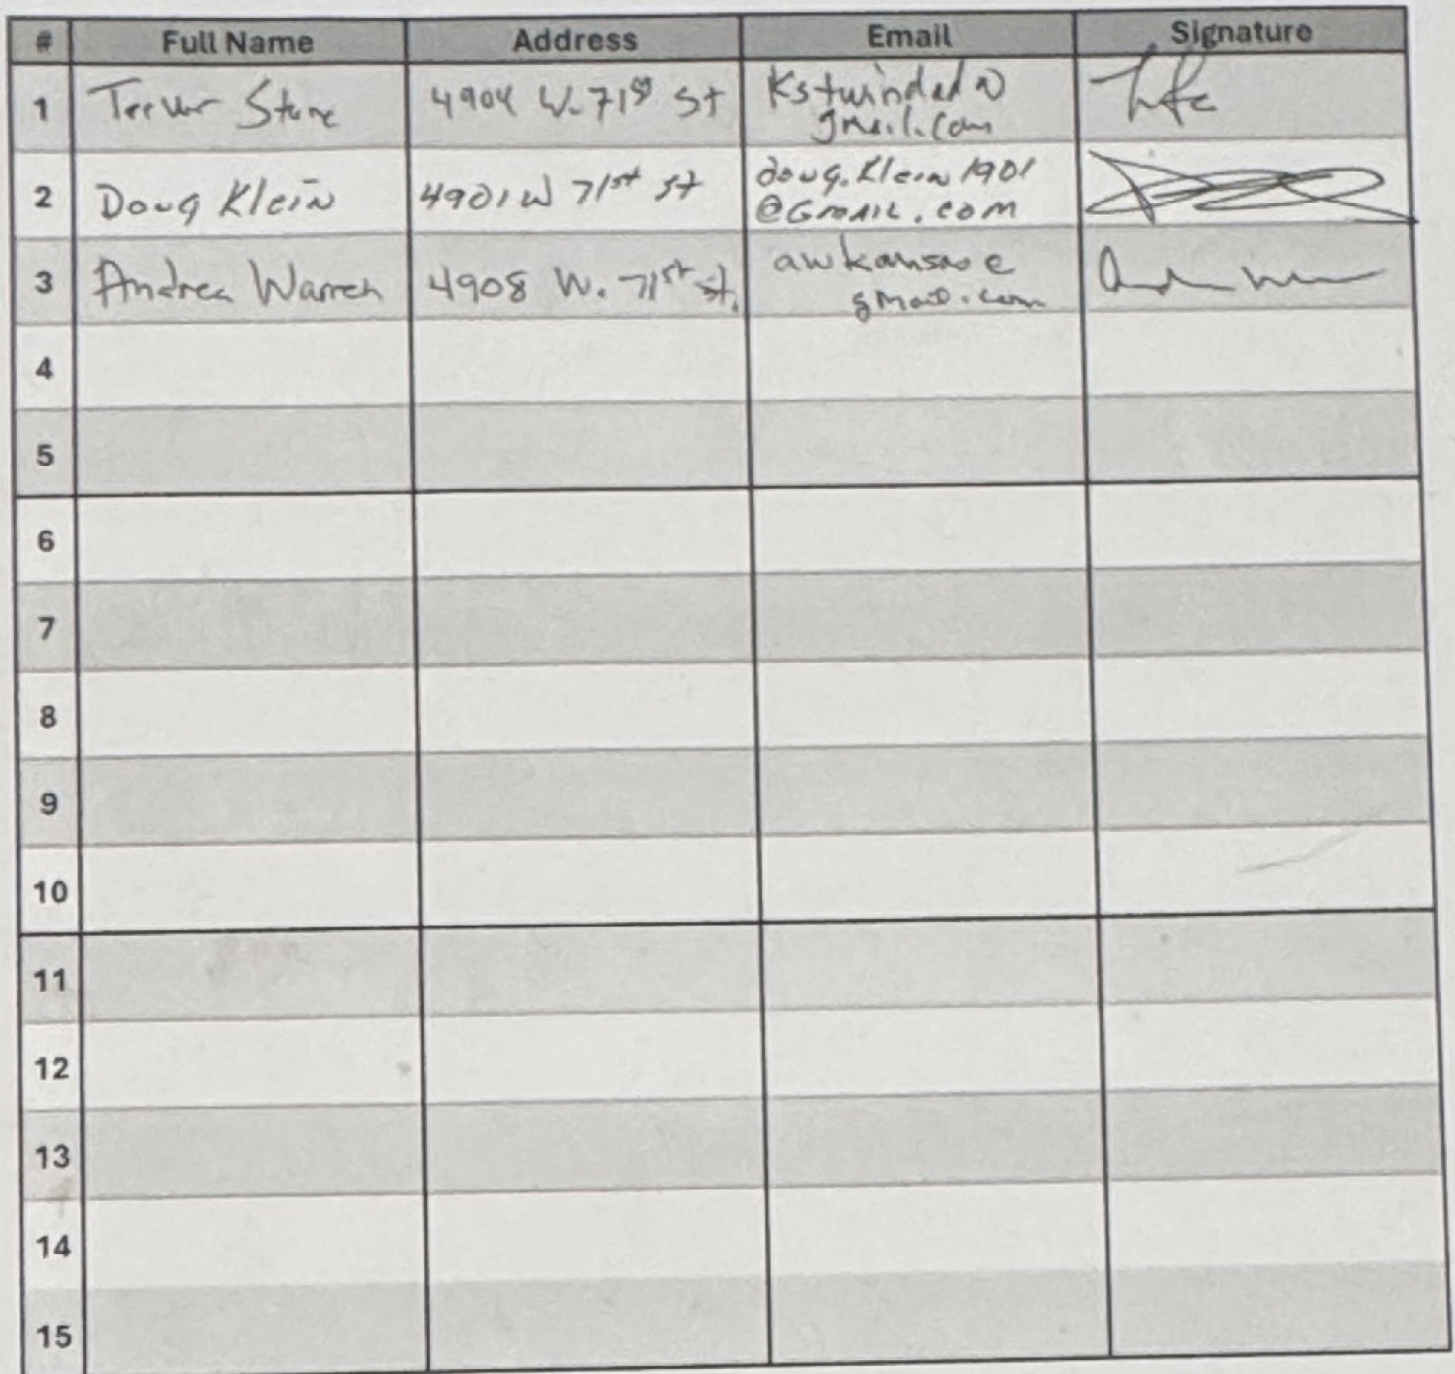 # Full Name Address Email Signature
1 Trevor Stone 4904 W. 71st St Kstwindad@
gmail.com
2 Doug Klein 4901 W 71st st doug.Klein1901
@Gmail.com
3 Andrea Warren 4908 W. 71st st. awkansas@
gmail.com
4
5
6
7
8
9
10
11
12
13
14
15